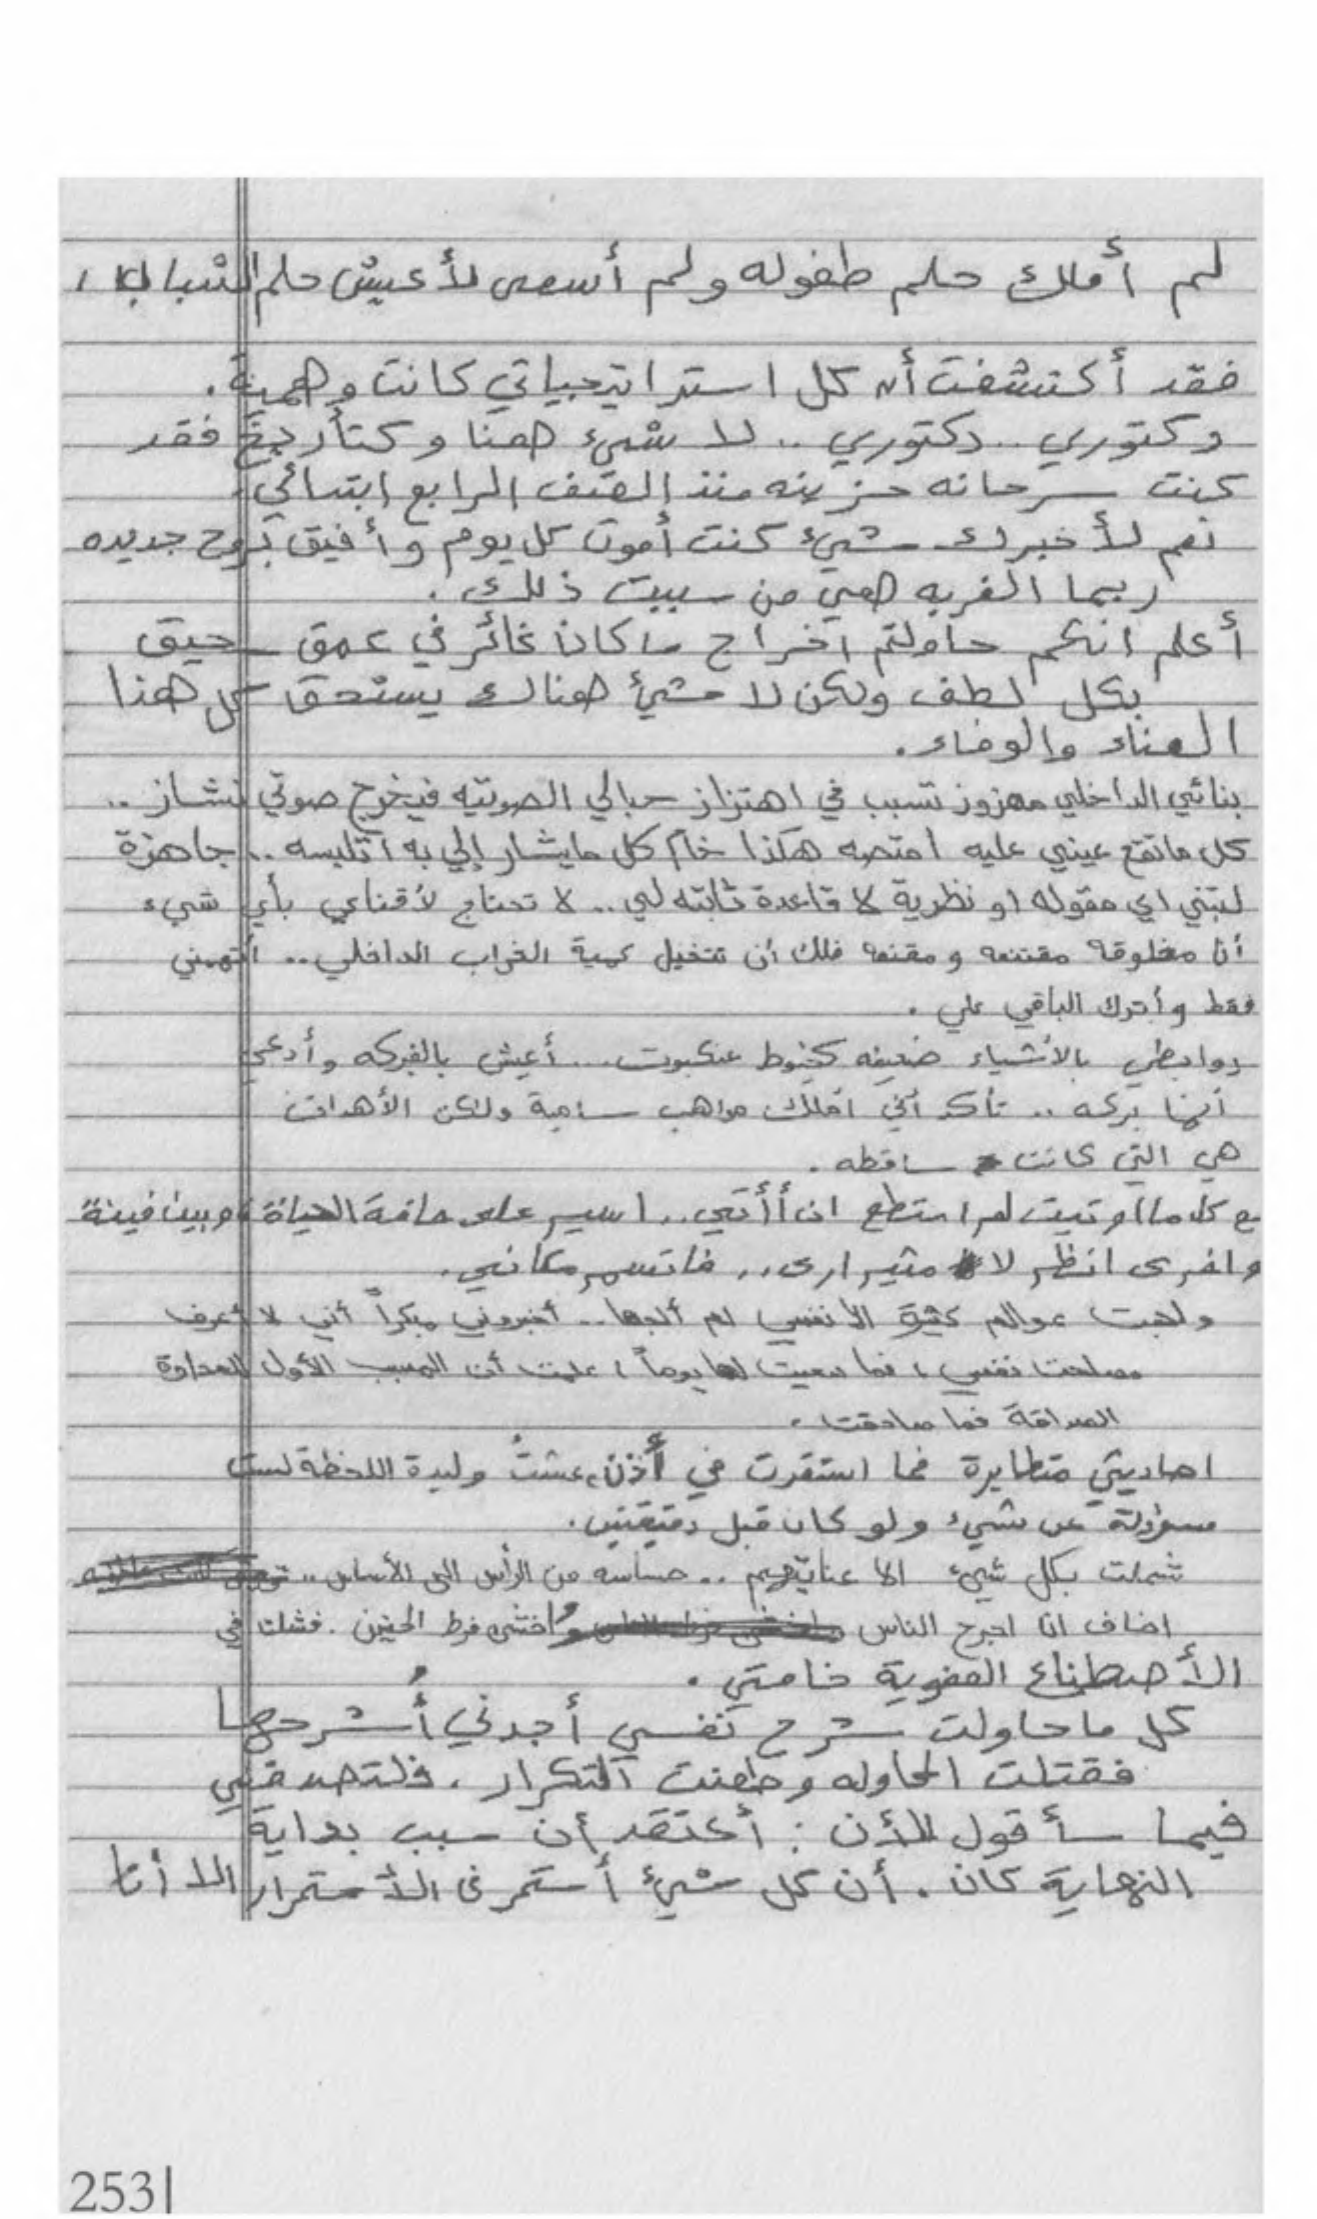 لم أملك حلم طفوله ولم أسعى لأعيش حلم الشباب ،
فقد أكتشفت أن كل استراتيجياتي كانت وهمية.
دكتوري .. دكتوري .. لا شيء هنا وكتأريخ فقد
كنت سرحانه حزينه منذ الصف الرابع ابتدائي.
نعم لأخبرك شيء كنت أموت كل يوم وأفيق بروح جديده
ربما الغربه هي من سببت ذلك .
أعلم انكم حاولتم اخراج ماكان غائر في عمق سحيق
بكل لطف ولكن لا شيء هناك يستحق كل هذا
العناء والوفاء .
بنائي الداخلي مهزوز تسبب في اهتزاز حبالي الصوتيه فيخرج صوتي نشاز ..
كل ماتقع عيني عليه امتصه هكذا خام كل مايشار إلي به أتلبسه .. جاهزة
لتبني اي مقوله او نظرية لا قاعدة ثابته لي .. لا تحتاج لأقناعي بأي شيء
أنا مخلوقه مقتنعه ومقنعه فلك أن تتخيل كمية الخراب الداخلي .. أتهمني
فقط وأترك الباقي علي .
روابطي بالأشياء ضعيفه كخيوط عنكبوت ... أعيش بالفبركه وأدعي
أنها بركه .. تأكد أني املك مواهب سامية ولكن الأهداف
هي التي كانت ساقطه .
مع كل ما أوتيت لم استطع ان أأتي .. اسير على حافة الحياة ، وبين فينة
واخرى انظر لا مثير ارى .. فاتسمر مكاني .
ولجت عوالم كثيرة الا نفسي لم ألجها .. أخبروني مبكراً أني لا أعرف
مصلحت نفسي ، فما سعيت لها يوماً ، علمت أن المسبب الأول للعداوة
الصداقة فما صادقت .
احاديثي متطايرة فما استقرت في أذن ، عشتُ وليدة اللحظة لست
مسؤولة عن شيء ولو كان قبل دقيقتين .
شملت بكل شيء الا عنايتهم .. حساسه من الرأس الى الأساس ..
اخاف انا اجرح الناس وُاخشى فرط الحنين . فشلت في
الأصطناع العفوية خامتي .
كل ماحاولت شرح نفسي أجدني أُشرحها
فقتلت المحاوله وطعنت التكرار . فلتصدقني
فيما سأقول للأن : أعتقد أن سبب بداية
النهاية كان . أن كل شيء أستمر في الأستمرار الا أنا
253|